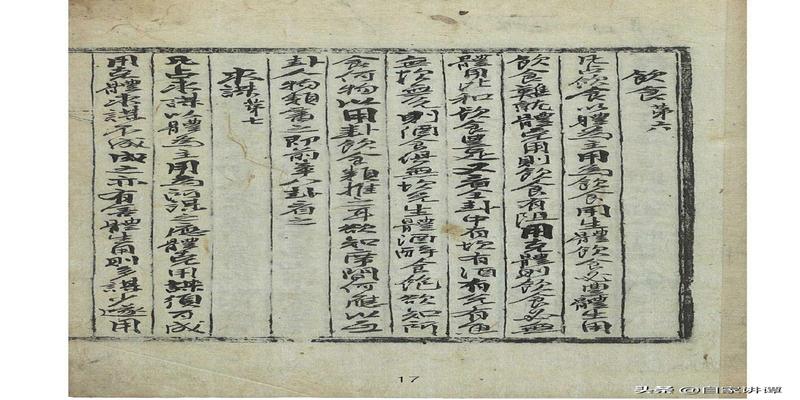 飲食第六
凡占飲食以體為主用為飲食用生體飲食必豐體生用
飲食難就體克用則飲食有阻用克體則飲食必無
體用比和飲食豐足又看卦中有坎有酒有兌有食
無坎無兌則酒食俱無坎兌生體酒醉食飽欲知所
食何物以用卦飲食類推之耳欲知席間何應以互
卦人物類看之即前八卦看之
求謀第七
凡占求謀以體為主用為所謀之應體克用謀須可成
用克體求謀不成成之亦有害體生用則多謀少遂用
17
头条 @自家讲谭